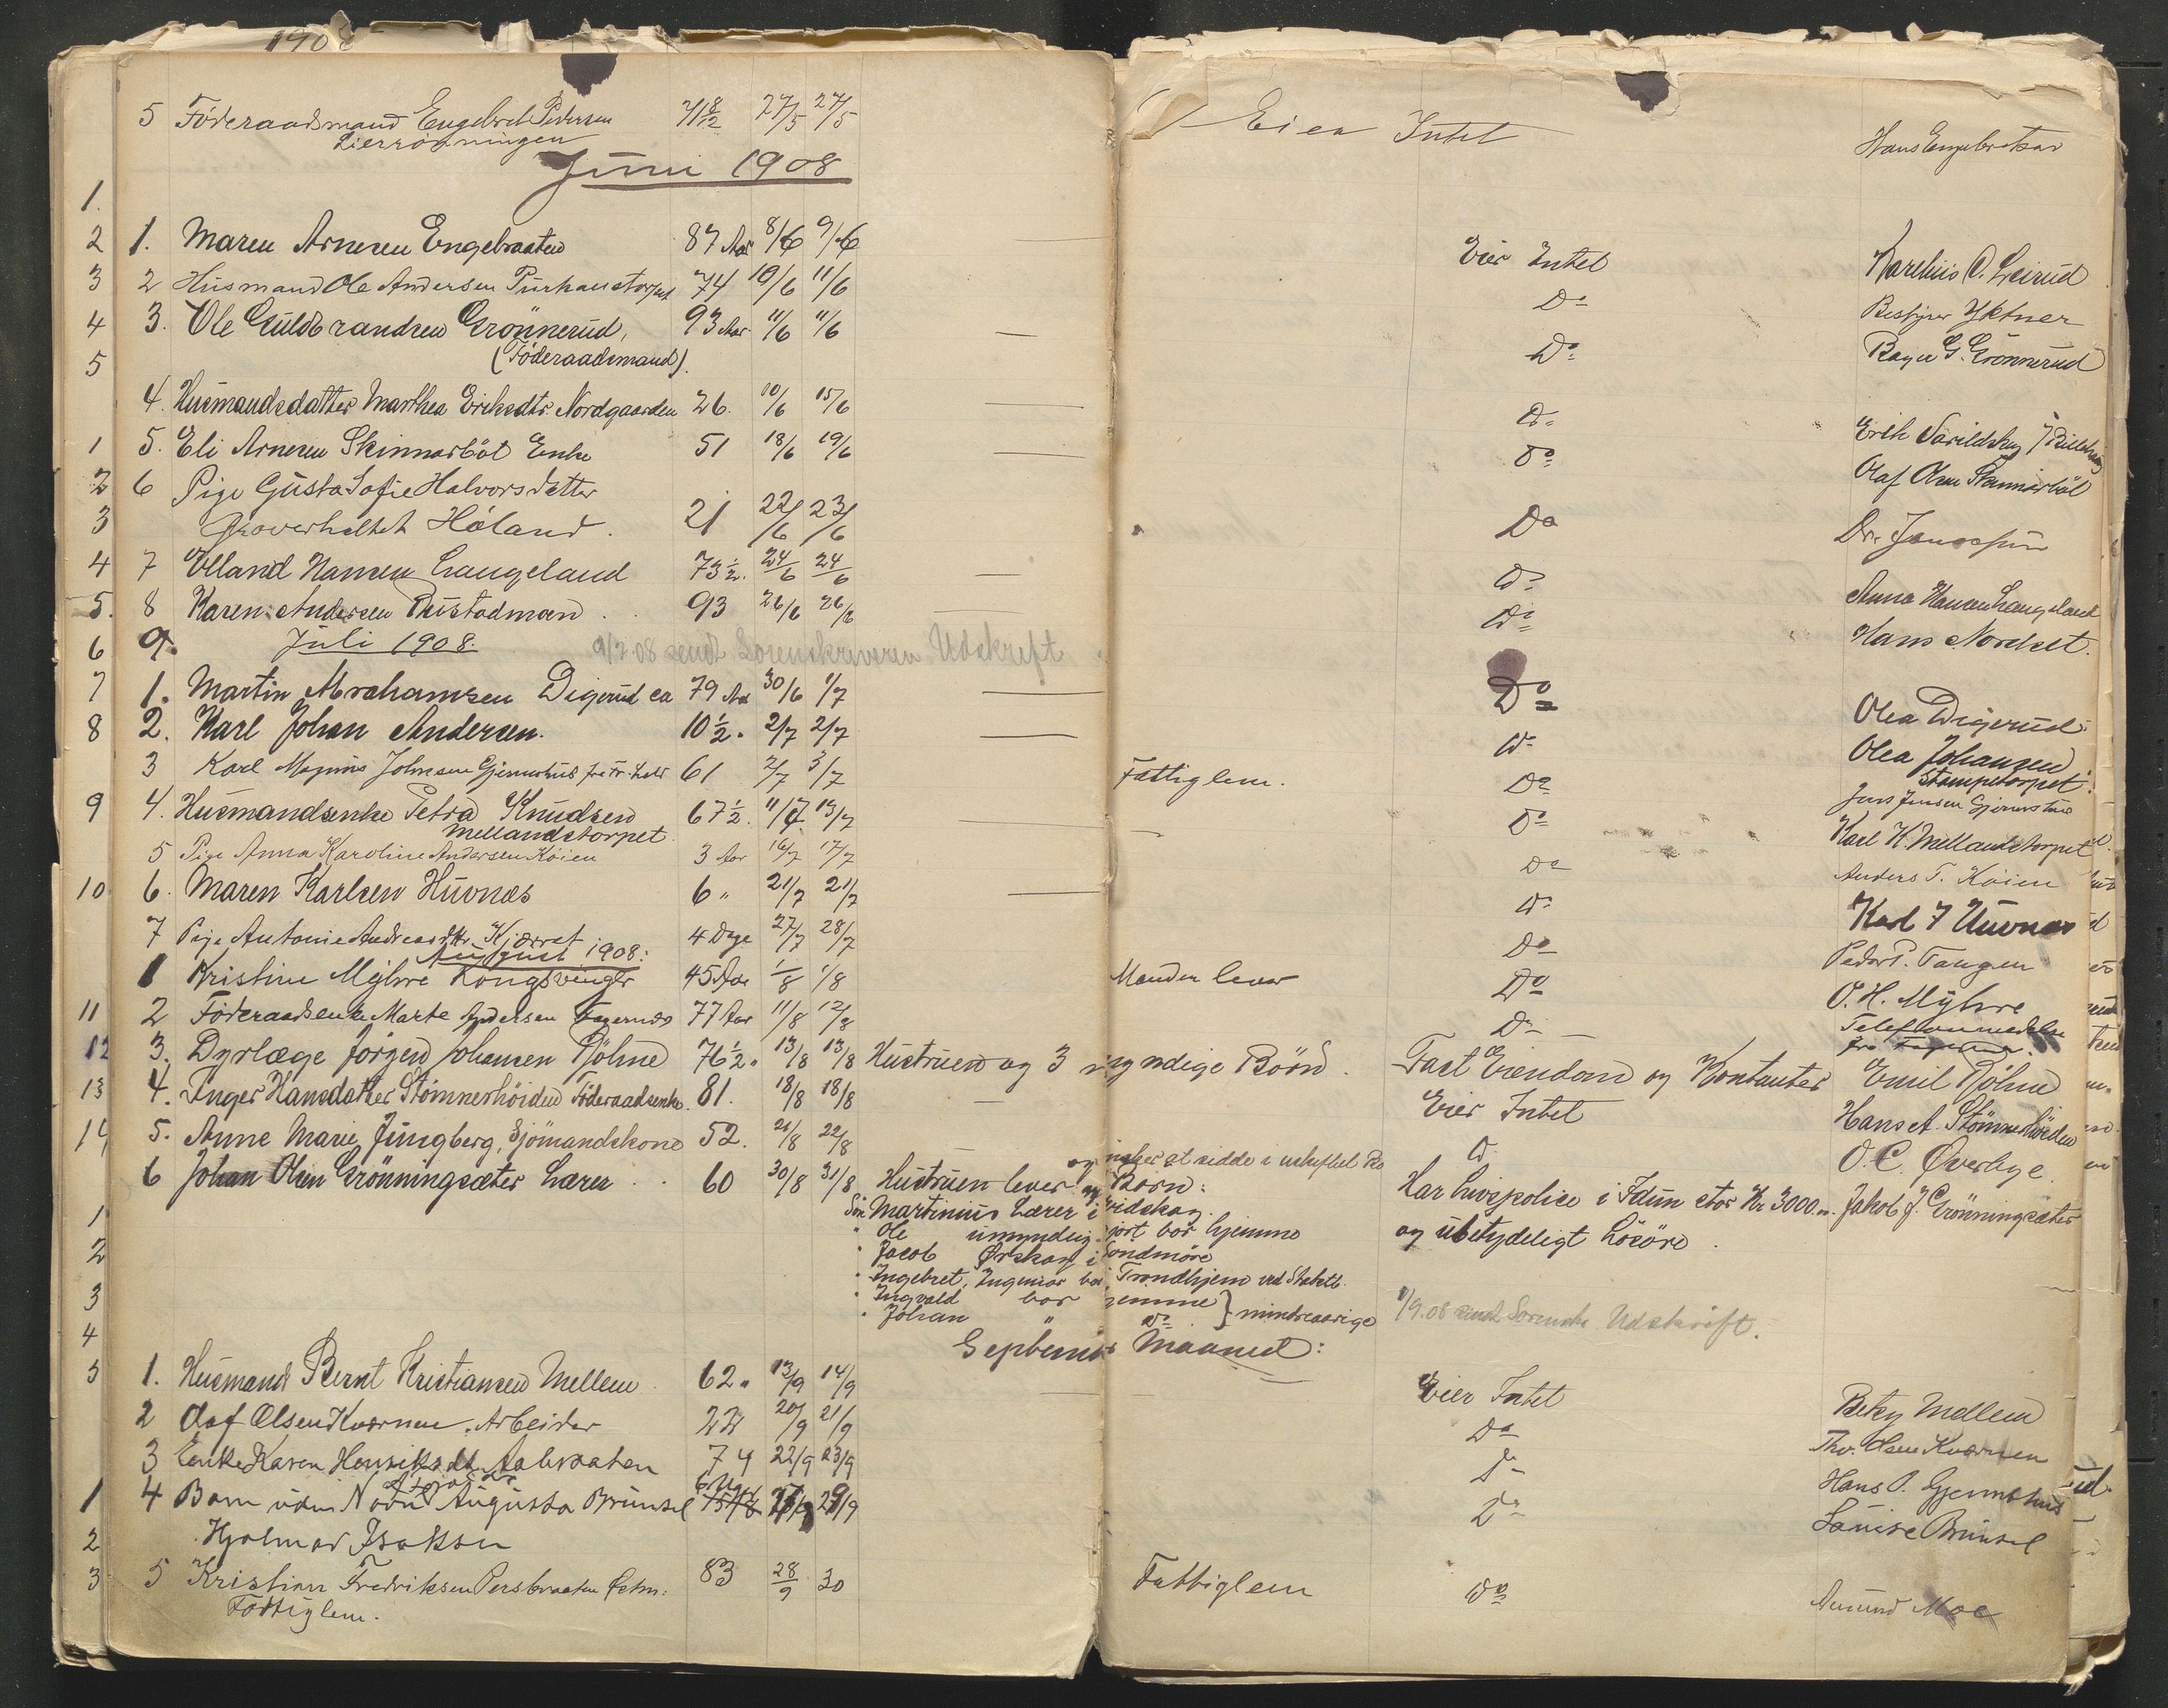 1908
5 Föderaadsmand Engebret Pedersen 71 8/12 27/5 27/5 Eier Intet Hans Engebretsen
Lierrönningen
Juni 1908
1. Maren Arnesen Engebraaten 87 Aar 8/6 9/6 Eier Intet Karelius O. Leirud
2 Husmand Ole Andersen Purkaustorpet 74 10/6 11/6 Do Bestyrer Yktner
3. Ole Guldbrandsen Grönnerud, 93 Aar 11/6 11/6 — Do G. Grönnerud
(Föderaadsmand).
4. Husmandsdatter Marthea Eriksdtr. Nordgaarden 26. 10/6 15/6 — Do Erik
5. Eli Arnesen Skinnarböl Enke 51 18/6 19/6 — Do Olaf Olsen Skinnarböl
6 Pige Gusta Sofie Halvorsdatter
Höland. 21 22/6 23/6 Do Dr.
7 Olland Hansen Langeland 73 1/2. 24/6 24/6 — Do Anna Hansen Langeland
8 Karen Andersen Rustadman 93 26/6 26/6 — Do Hans Nordset.
9. Juli 1908. 9/7.08 sendt Sorenskriveren Udskrift
1. Martin Abrahamsen Digerud ca 79 Aar 30/6 1/7 — Do Olea Digerud.
2. Karl Johan Andersen. 10 1/2. 2/7 2/7 — Do Olea Johansen
Stampetorpet.
3 Karl Magnus Johnsen Gjermshus 61 2/7 3/7 Fattiglem. Do Jens Jensen Gjermshus
4. Husmandsenke Petra Knudsen 67 1/2. 11/7 13/7 — Do Karl K. Mellandstorpet
Mellandstorpet
5 Pige Anna Karoline Andersen Köien 3 Aar 16/7 17/7 Do Anders T. Köien
6. Maren Karlsen Huvnæs 6 " 21/7 21/7 — Do Karl J Huvnæs
7 Pige Antonie Andreasdtr. Kjærret 4 Dage 27/7 28/7 Do Peder P. Tangen
August 1908:
1 Kristine Myhre Kongsvinger 45 Aar 1/8 1/8 Manden lever Do O. H. Myhre
2 Föderaadsenke Marte Andersen Fagernæs 77 Aar 11/8 12/8 Do Telefonmeddelse
fra Fagernæs.
3. Dyrlæge Jörgen Johansen Pjöhne 76 1/2. 13/8 13/8 Hustruen og 3 myndige Börn. Fast Eiendom og Kontanter Emil Pjöhne
4. Inger Hansdatter Stömnerhöiden Föderaadsenke. 81. 18/8 18/8 — Eier Intet Hans A. Stömnerhöiden
5. Anne Marie Jungberg, Sjömandskone 52. 21/8 22/8 Do O. C. Øverbye.
önsker at sidde i uskiftet Bo
6 Johan Olsen Grönningsæter Lærer 60 30/8 31/8 Hustruen lever og Börn: Har Livspolice i Idun stor Kr 3000.00. Jakob J. Grönningsæter
og ubetydeligt Lösöre.
Sön Martinus Lærer i Eidskog.
" Ole umyndiggjort bor hjemme
" Jacob Ørskog i Söndmöre
" Ingebret, Ingeniör bor i Trondhjem ved Statsb.
" Ingvald bor hjemme } mindreaarige
" Johan " Do 1/9.08 sendt Sorenskr. Udskrift.
September Maaned:
1. Husmand Bernt Kristiansen Mellem 62. 13/9 14/9 — Eier Intet Betzy Mellem
2 Olaf Olsen Kværnen. Arbeider 22 20/9 21/9 Do Thv. Olsen Kværnen
3 Enke Karen Henriksdtr. Aabraaten 74 22/9 23/9 Do Hans P. Gjermshus
4 Barn uden Navn Augusta Brunsel 6 Uger 27/9 29/9 Do Louise Brunsel
Hjalmar Isaksen
5 Kristian Fredriksen Persbraaten Østm: 83 28/9 30 Fattiglem Do Amund Moe
Fattiglem.